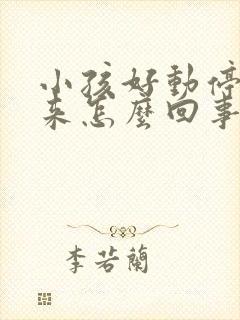 小孩好動停
來怎麼回事
李若蘭